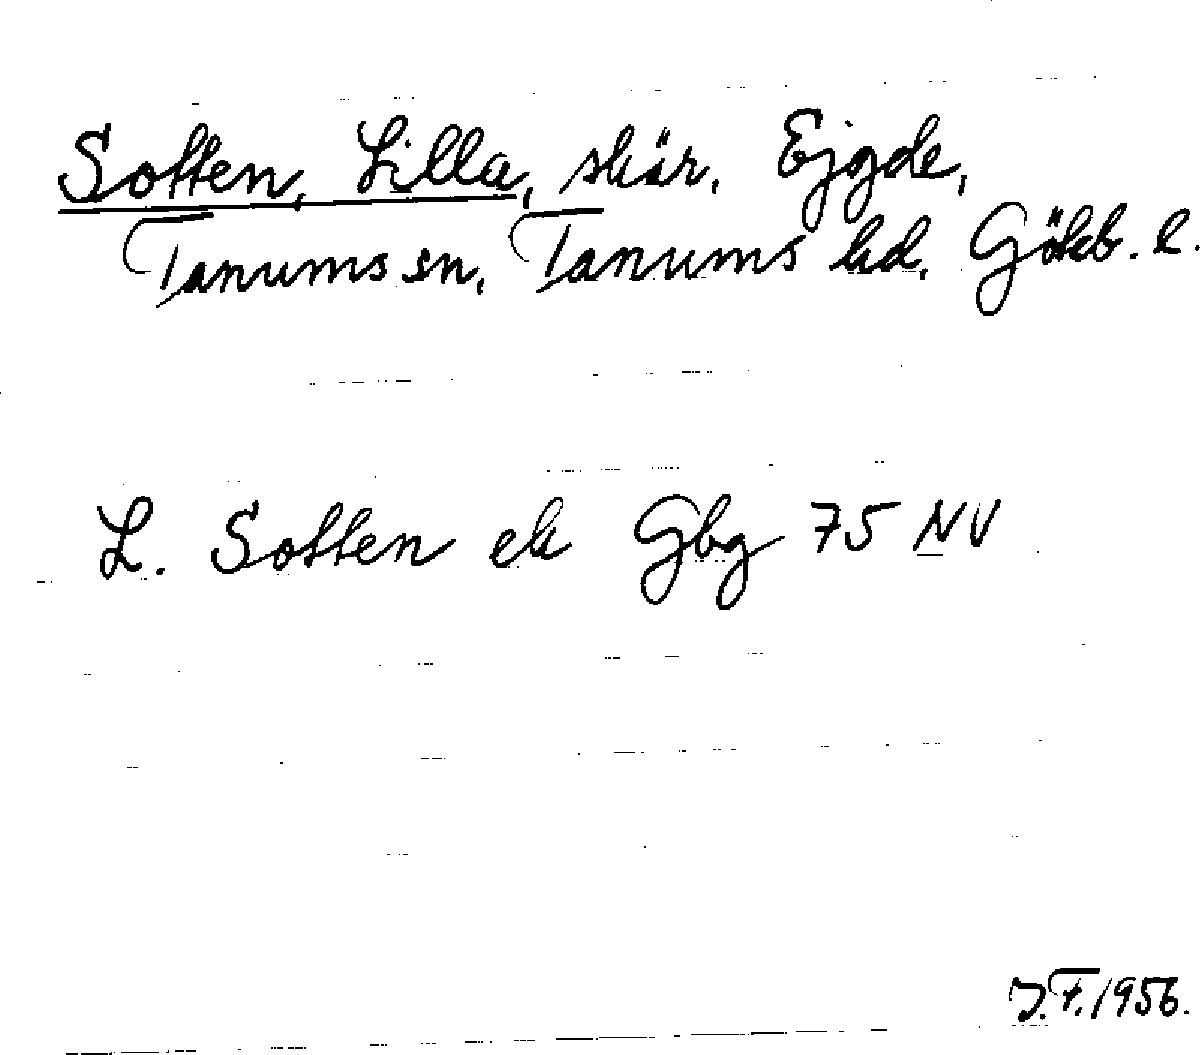 Sotten, Lilla, skär, Ejgde,
Tanums sn, Tanums hd, Göteb. l.
L. Sotten ek Gbg 75 NV
J.F. 1956.